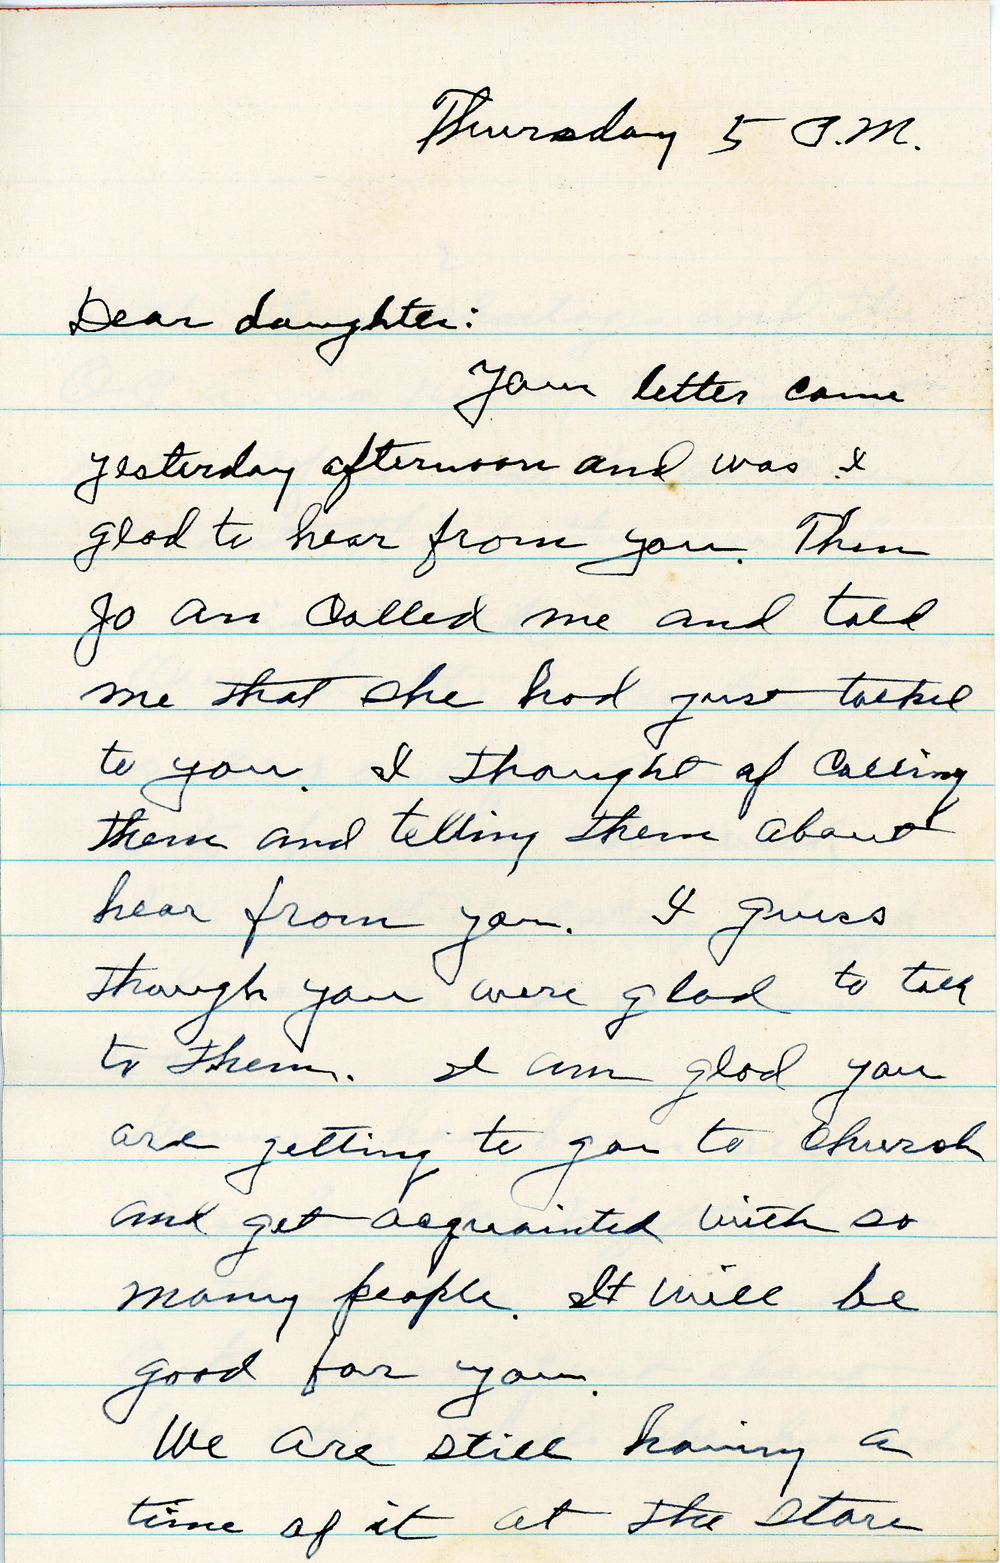 Thursday 5 P.M.
Dear daughter:
Your letter came
yesterday afternoon and was I
glad to hear from you. Then
Jo An Called me and told
me that she had just talked
to you. I thought of Calling
them and telling them about
hear from you. I guess
though you were glad to talk
to them. I am glad you
are getting to go to Church
and get acquainted with so
many people. It will be
good for you.
We are still having a
time of it at the store